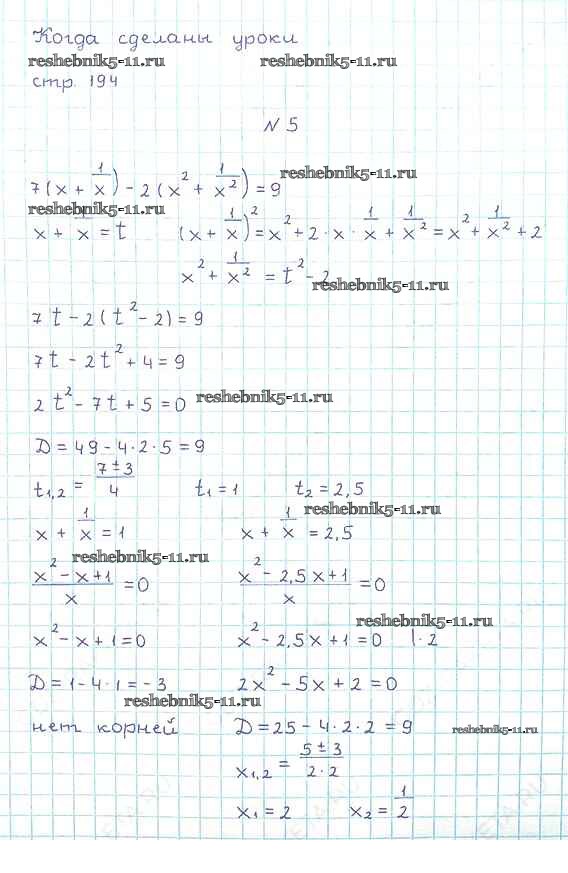 Когда сделаны уроки
reshebnik5-11.ru reshebnik5-11.ru
стр. 194
N 5
reshebnik5-11.ru
7(x + 1/x) - 2(x² + 1/x²) = 9
reshebnik5-11.ru
x + 1/x = t (x + 1/x)² = x² + 2 · x · 1/x + 1/x² = x² + 1/x² + 2
x² + 1/x² = t² - 2
reshebnik5-11.ru
7t - 2(t² - 2) = 9
7t - 2t² + 4 = 9
2t² - 7t + 5 = 0 reshebnik5-11.ru
D = 49 - 4 · 2 · 5 = 9
t1,2 = (7 ± 3)/4 t1 = 1 t2 = 2,5
reshebnik5-11.ru
x + 1/x = 1 x + 1/x = 2,5
reshebnik5-11.ru
(x² - x + 1)/x = 0 (x² - 2,5x + 1)/x = 0
reshebnik5-11.ru
x² - x + 1 = 0 x² - 2,5x + 1 = 0 | · 2
D = 1 - 4 · 1 = -3 2x² - 5x + 2 = 0
reshebnik5-11.ru
нет корней D = 25 - 4 · 2 · 2 = 9 reshebnik5-11.ru
x1,2 = (5 ± 3)/(2 · 2)
x1 = 2 x2 = 1/2